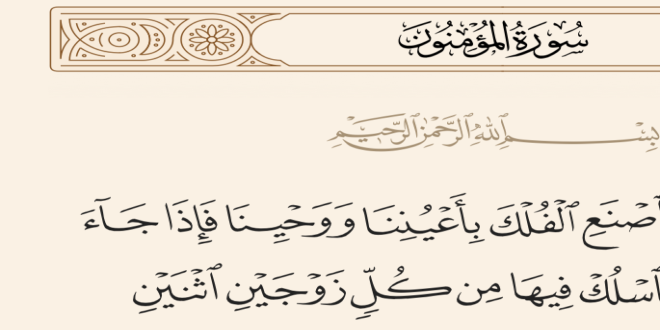 سُورَةُ المُؤْمِنُونَ
بِسْمِ ٱللَّهِ ٱلرَّحْمَٰنِ ٱلرَّحِيمِ
ٱصْنَعِ ٱلْفُلْكَ بِأَعْيُنِنَا وَوَحْيِنَا فَإِذَا جَآءَ
ٱسْلُكْ فِيهَا مِن كُلٍّ زَوْجَيْنِ ٱثْنَيْنِ